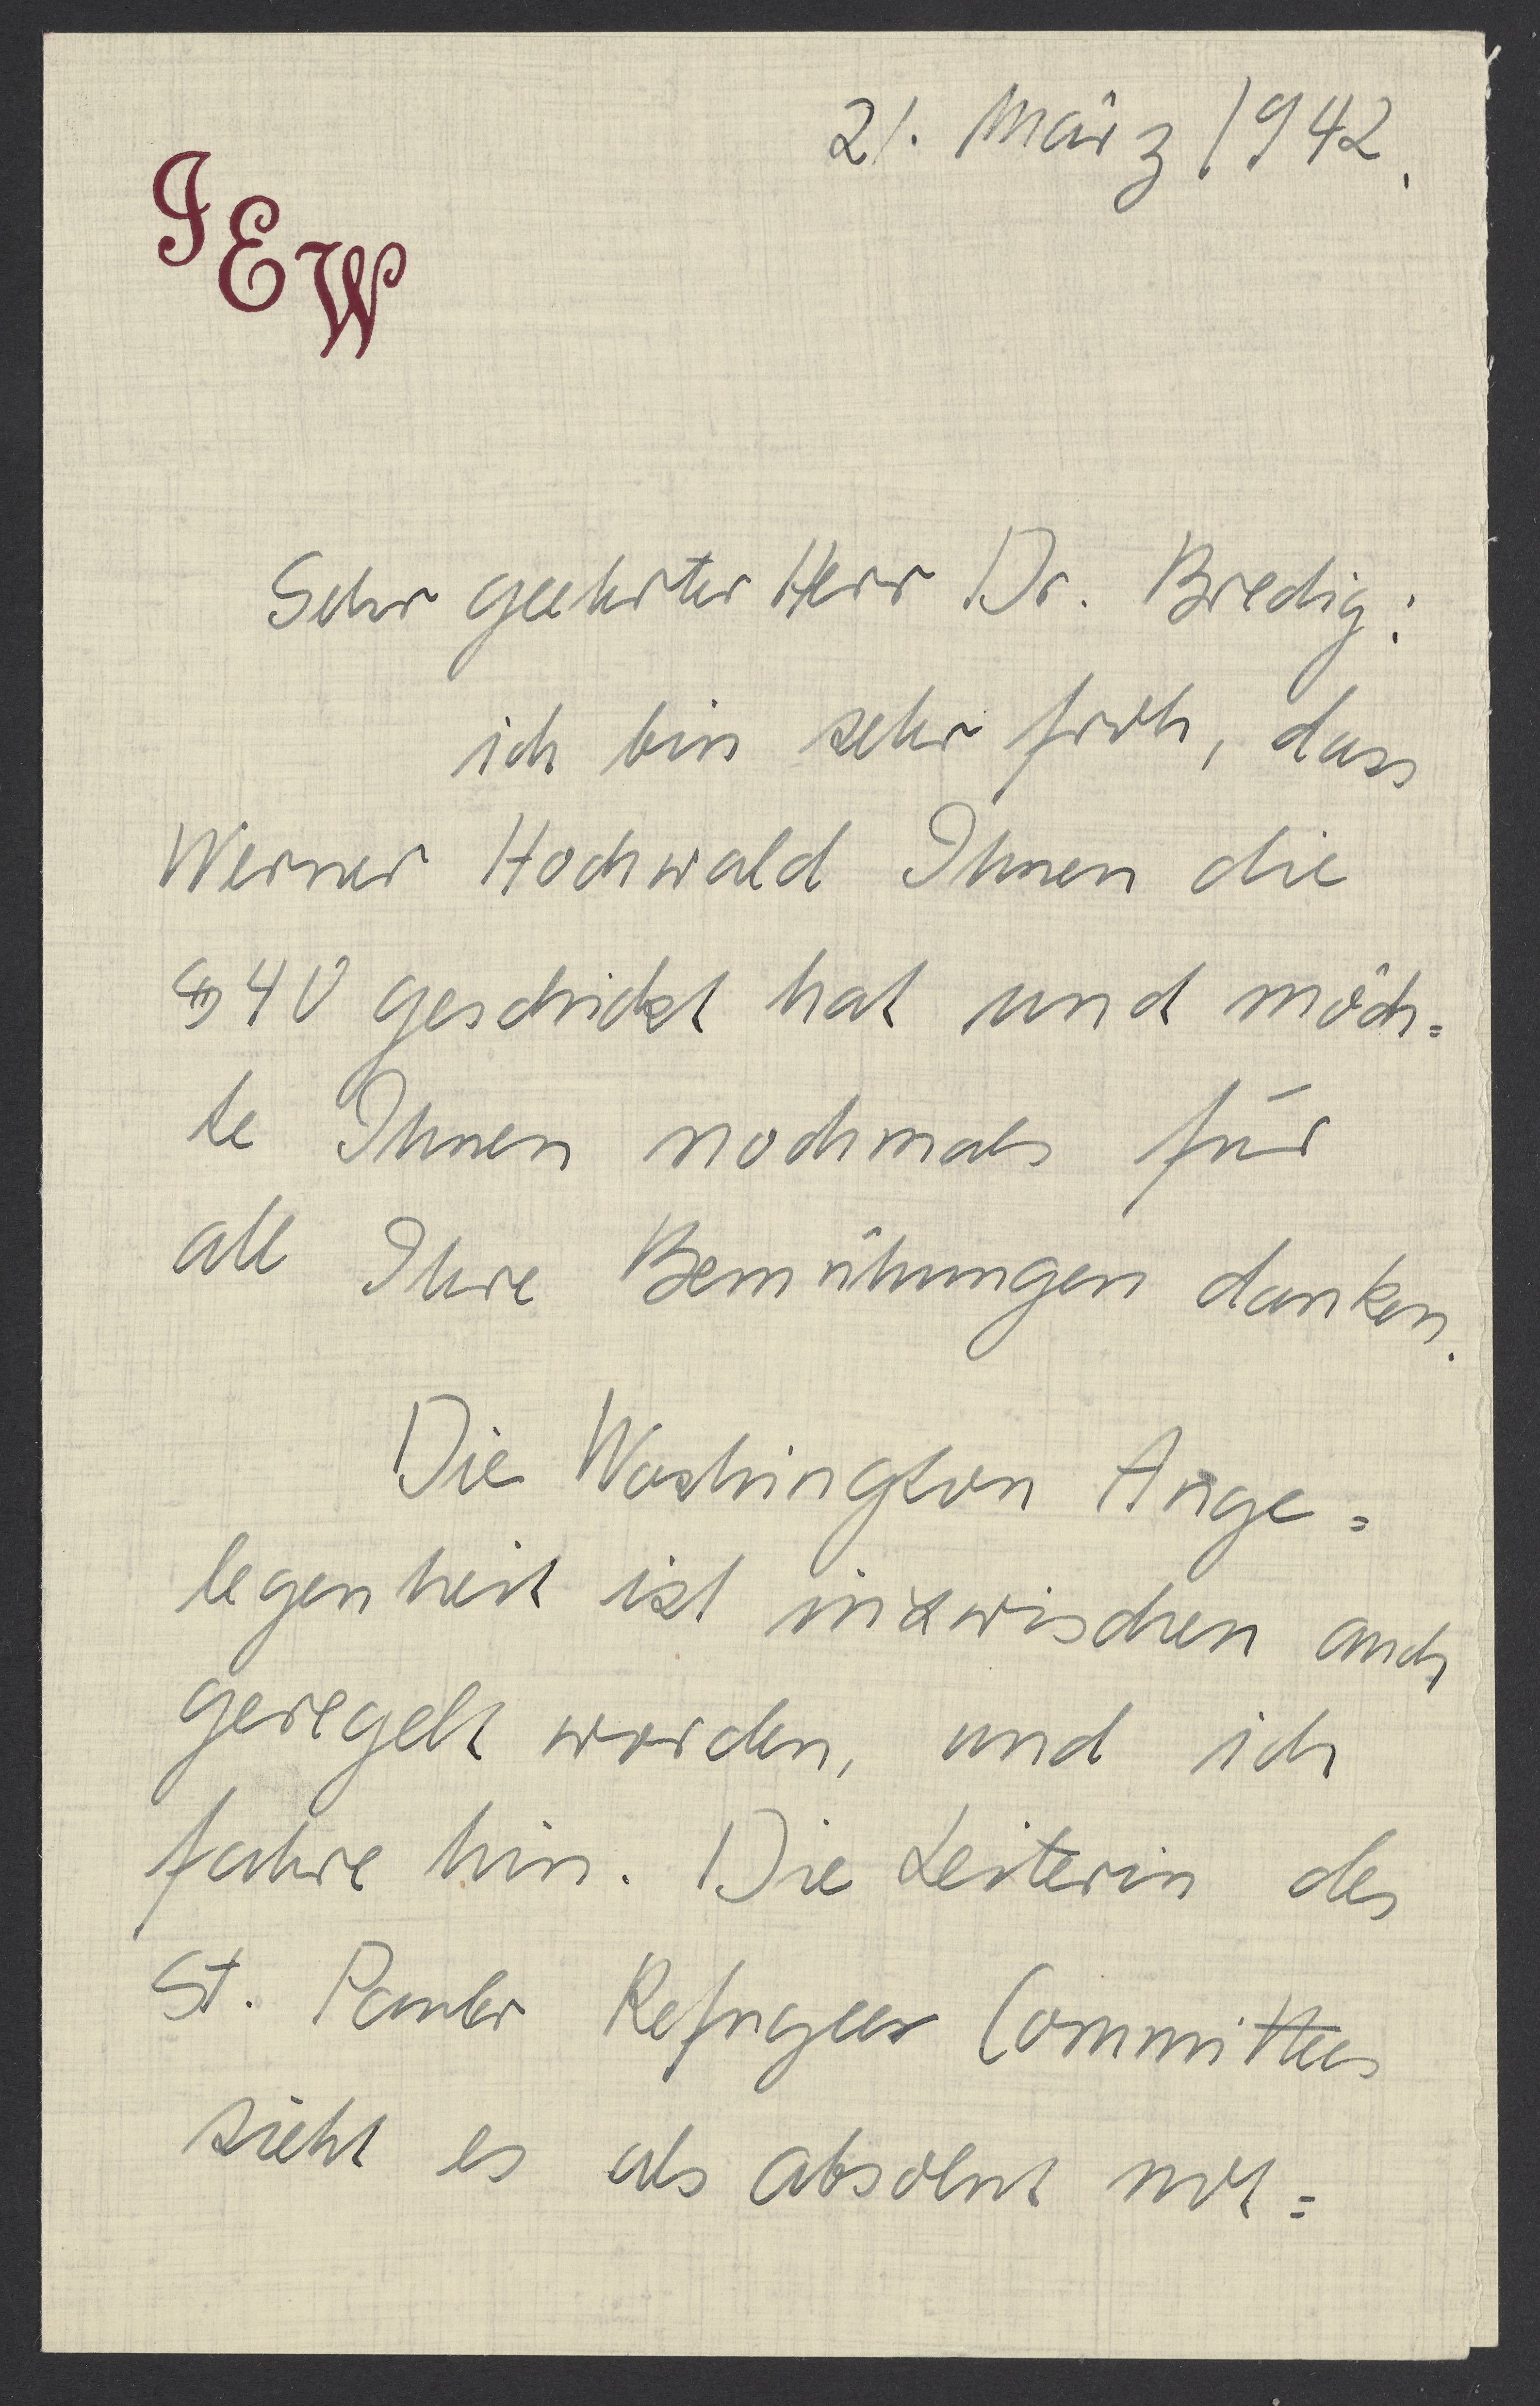 21. März 1942.
JEW
Sehr geehrter Herr Dr. Bredig:
ich bin sehr froh, dass
Werner Hochwald Ihnen die
$40 geschickt hat und möch=
te Ihnen nochmals für
all Ihre Bemühungen danken.
Die Washington Ange=
legenheit ist inzwischen auch
geregelt worden, und ich
fahre hin. Die Leiterin des
St. Pauler Refugee Committees
sieht es als absolut not=